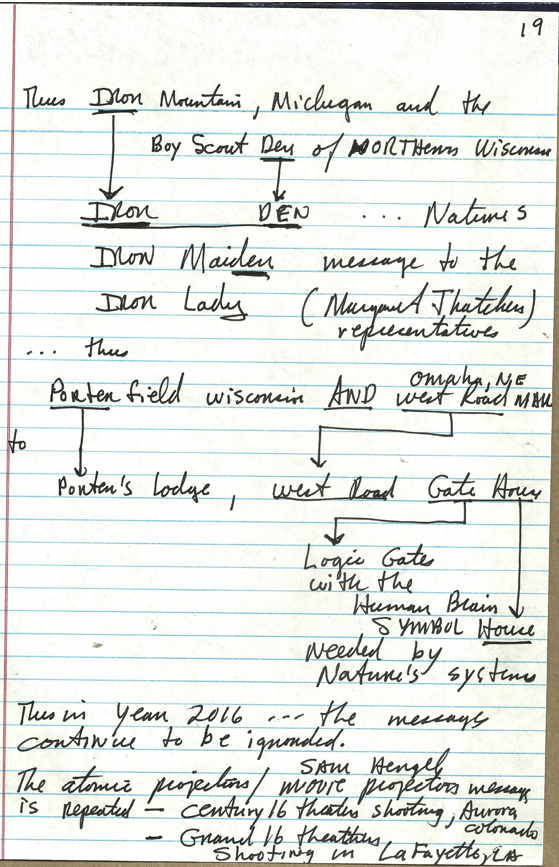 19
Thus Iron Mountain, Michigan and the
Boy Scout Den of NORTHern Wisconsin
Iron DEN ... Nature's
Iron Maiden message to the
Iron Lady (Margaret Thatchers)
representatives
... thus
Omaha, NE
Porterfield wisconsin AND west Road MALL
to
Porter's Lodge, west Road Gate House
Logic Gates
with the
Human Brain
SYMBOL House
needed by
Nature's systems
Thus in year 2016 --- the messages
continue to be ignored.
SAM Hengel
The atomic projectors/ movie projectors message
is repeated - century 16 theater shooting, Aurora
colorado
- Grand 16 theatre
Shooting in LaFayette, LA